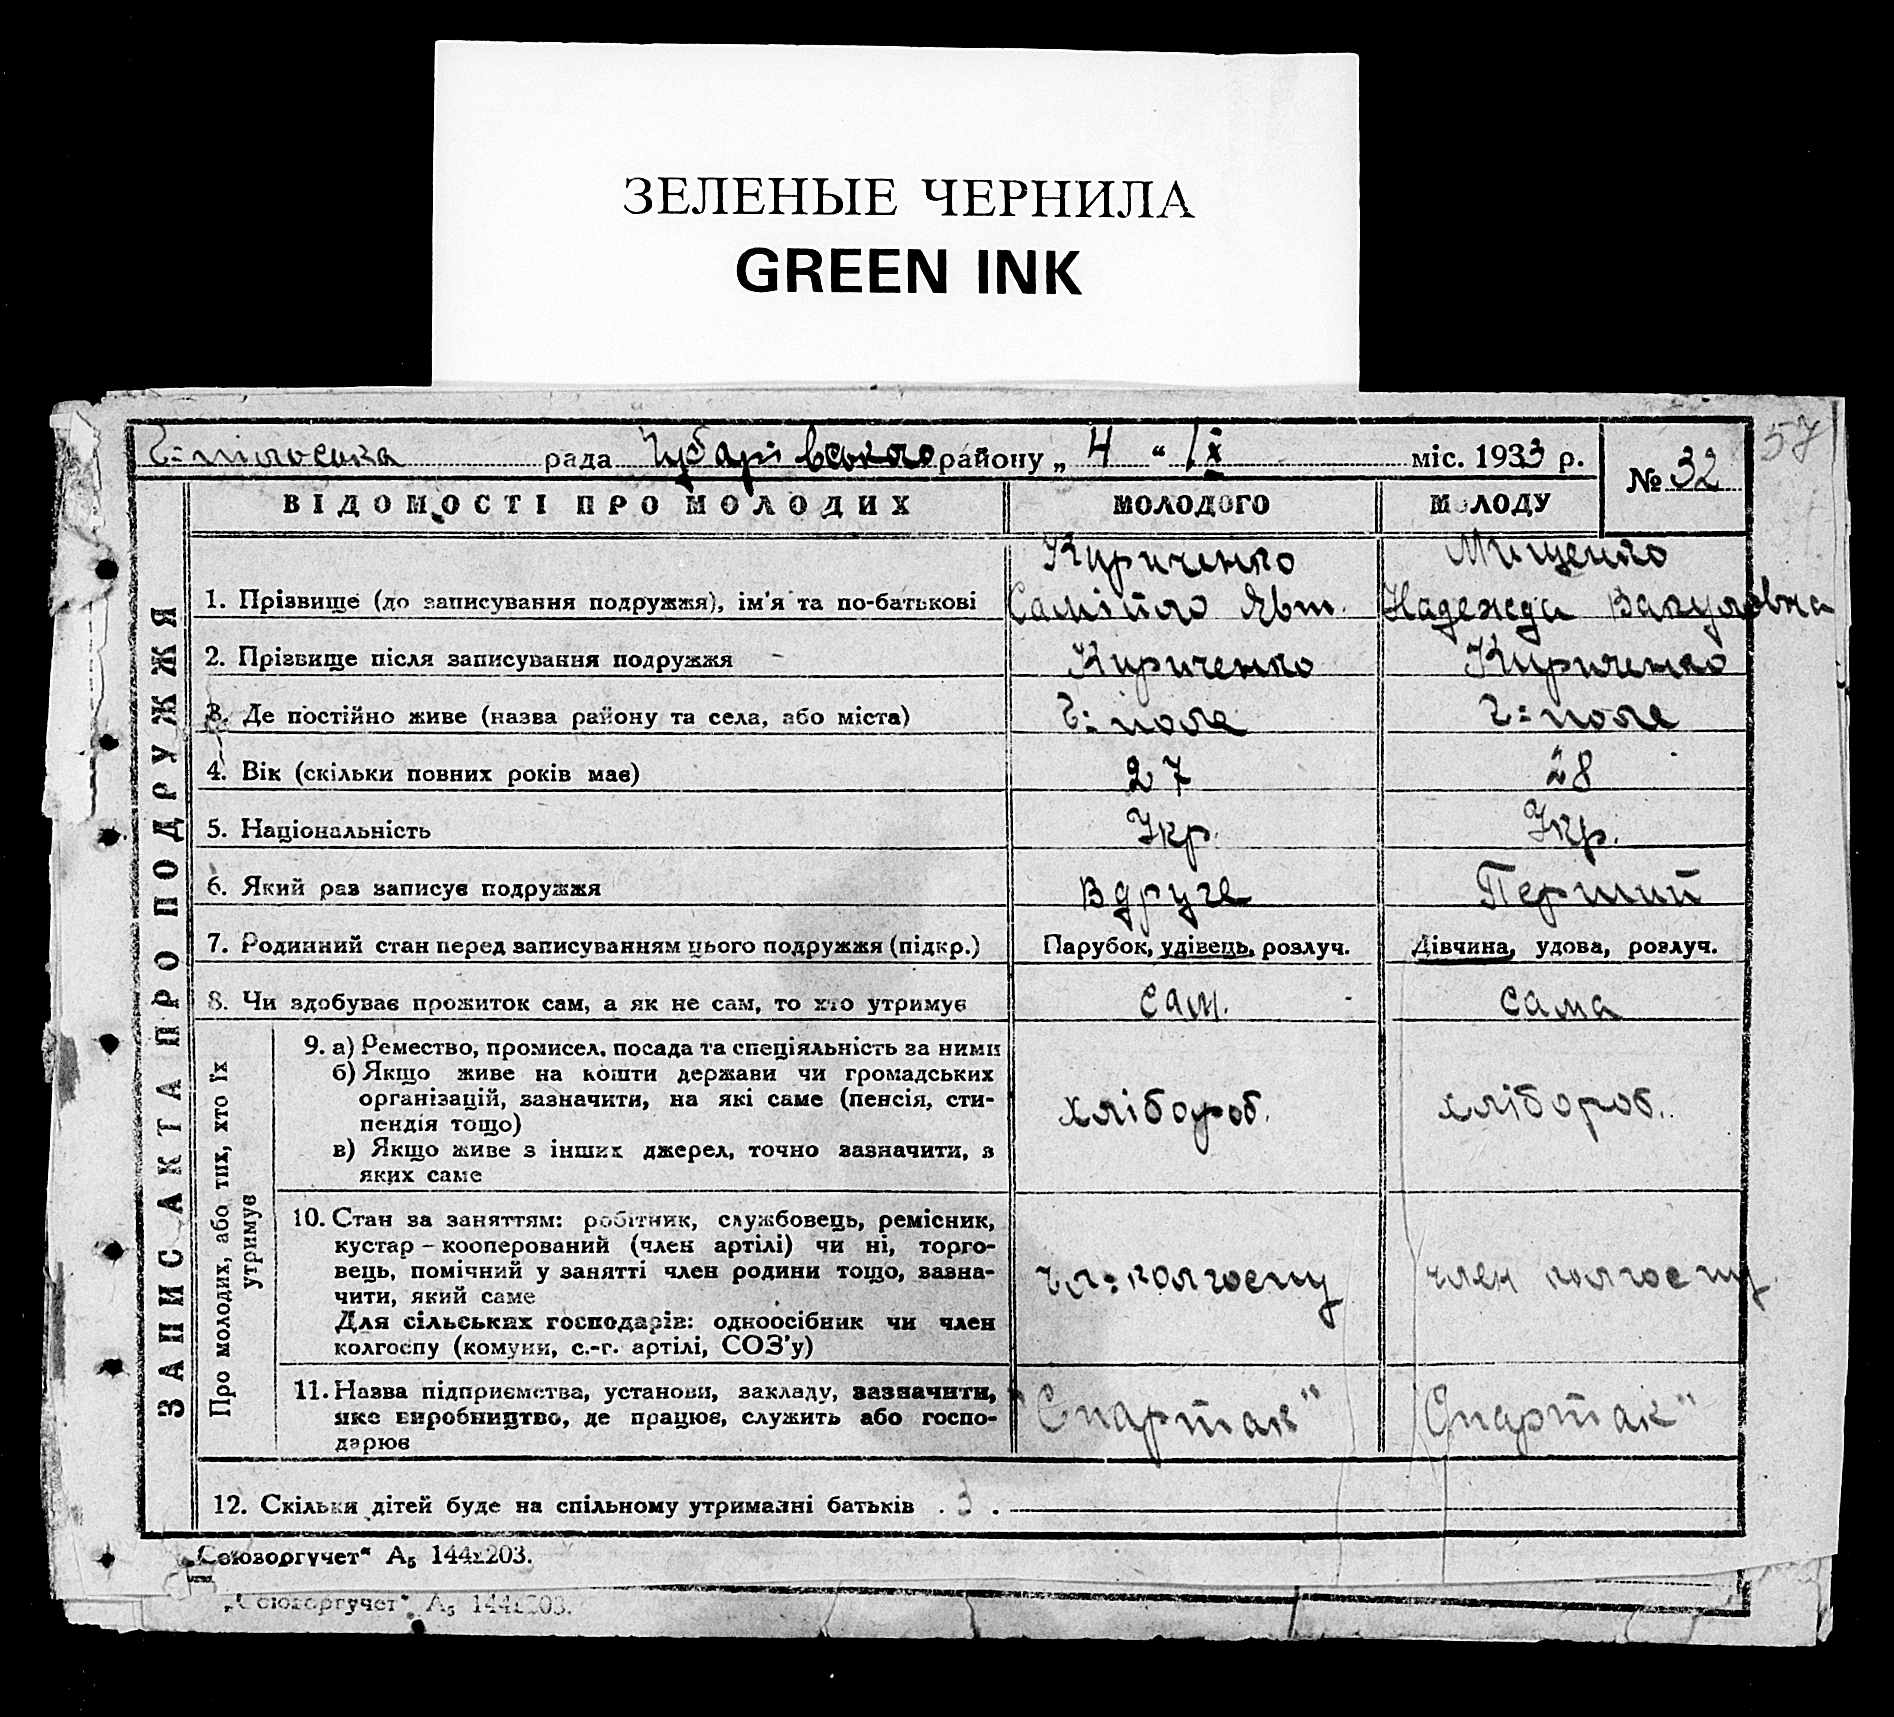 ЗЕЛЕНЫЕ ЧЕРНИЛА
GREEN INK
57
рада Чубарівського району „ 4 “ IX міс. 1933 р.
№ 32
ВІДОМОСТІ ПРО МОЛОДИХ МОЛОДОГО МОЛОДУ
ЗАПИС АКТА ПРО ПОДРУЖЖЯ
Кириченко Мищенко
1. Прізвище (до записування подружжя), ім'я та по-батькові Самійло Явт. Надежда Вакуловна
2. Прізвище після записування подружжя Кириченко Кириченко
3. Де постійно живе (назва району та села, або міста) Г=поле Г=поле
4. Вік (скільки повних років має) 27 28
5. Національність Укр. Укр.
6. Який раз записує подружжя Вдруге Перший
7. Родинний стан перед записуванням цього подружжя (підкр.) Парубок, удівець, розлуч. Дівчина, удова, розлуч.
8. Чи здобуває прожиток сам, а як не сам, то хто утримує сам. сама
Про молодих, або тих, хто їх
утримує
9. а) Ремество, промисел, посада та спеціяльність за ними
б) Якщо живе на кошти держави чи громадських
організацій, зазначити, на які саме (пенсія, сти-
пендія тощо)
в) Якщо живе з інших джерел, точно зазначити, з
яких саме
хлібороб. хлібороб.
10. Стан за заняттям: робітник, службовець, ремісник,
кустар – кооперований (член артілі) чи ні, торго-
вець, помічний у занятті член родини тощо, зазна-
чити, який саме
Для сільських господарів: одноосібник чи член
колгоспу (комуни, с.-г. артілі, СОЗ'у)
чл=колгоспу член колгоспу
11. Назва підприємства, установи, закладу, зазначити,
яке виробництво, де працює, служить або госпо-
дарює
"Спартак" "Спартак"
12. Скільки дітей буде на спільному утриманні батьків . 3 .
„Союзоргучет“ А₅ 144х203.
„Союзоргучет“ А₅ 144х203.